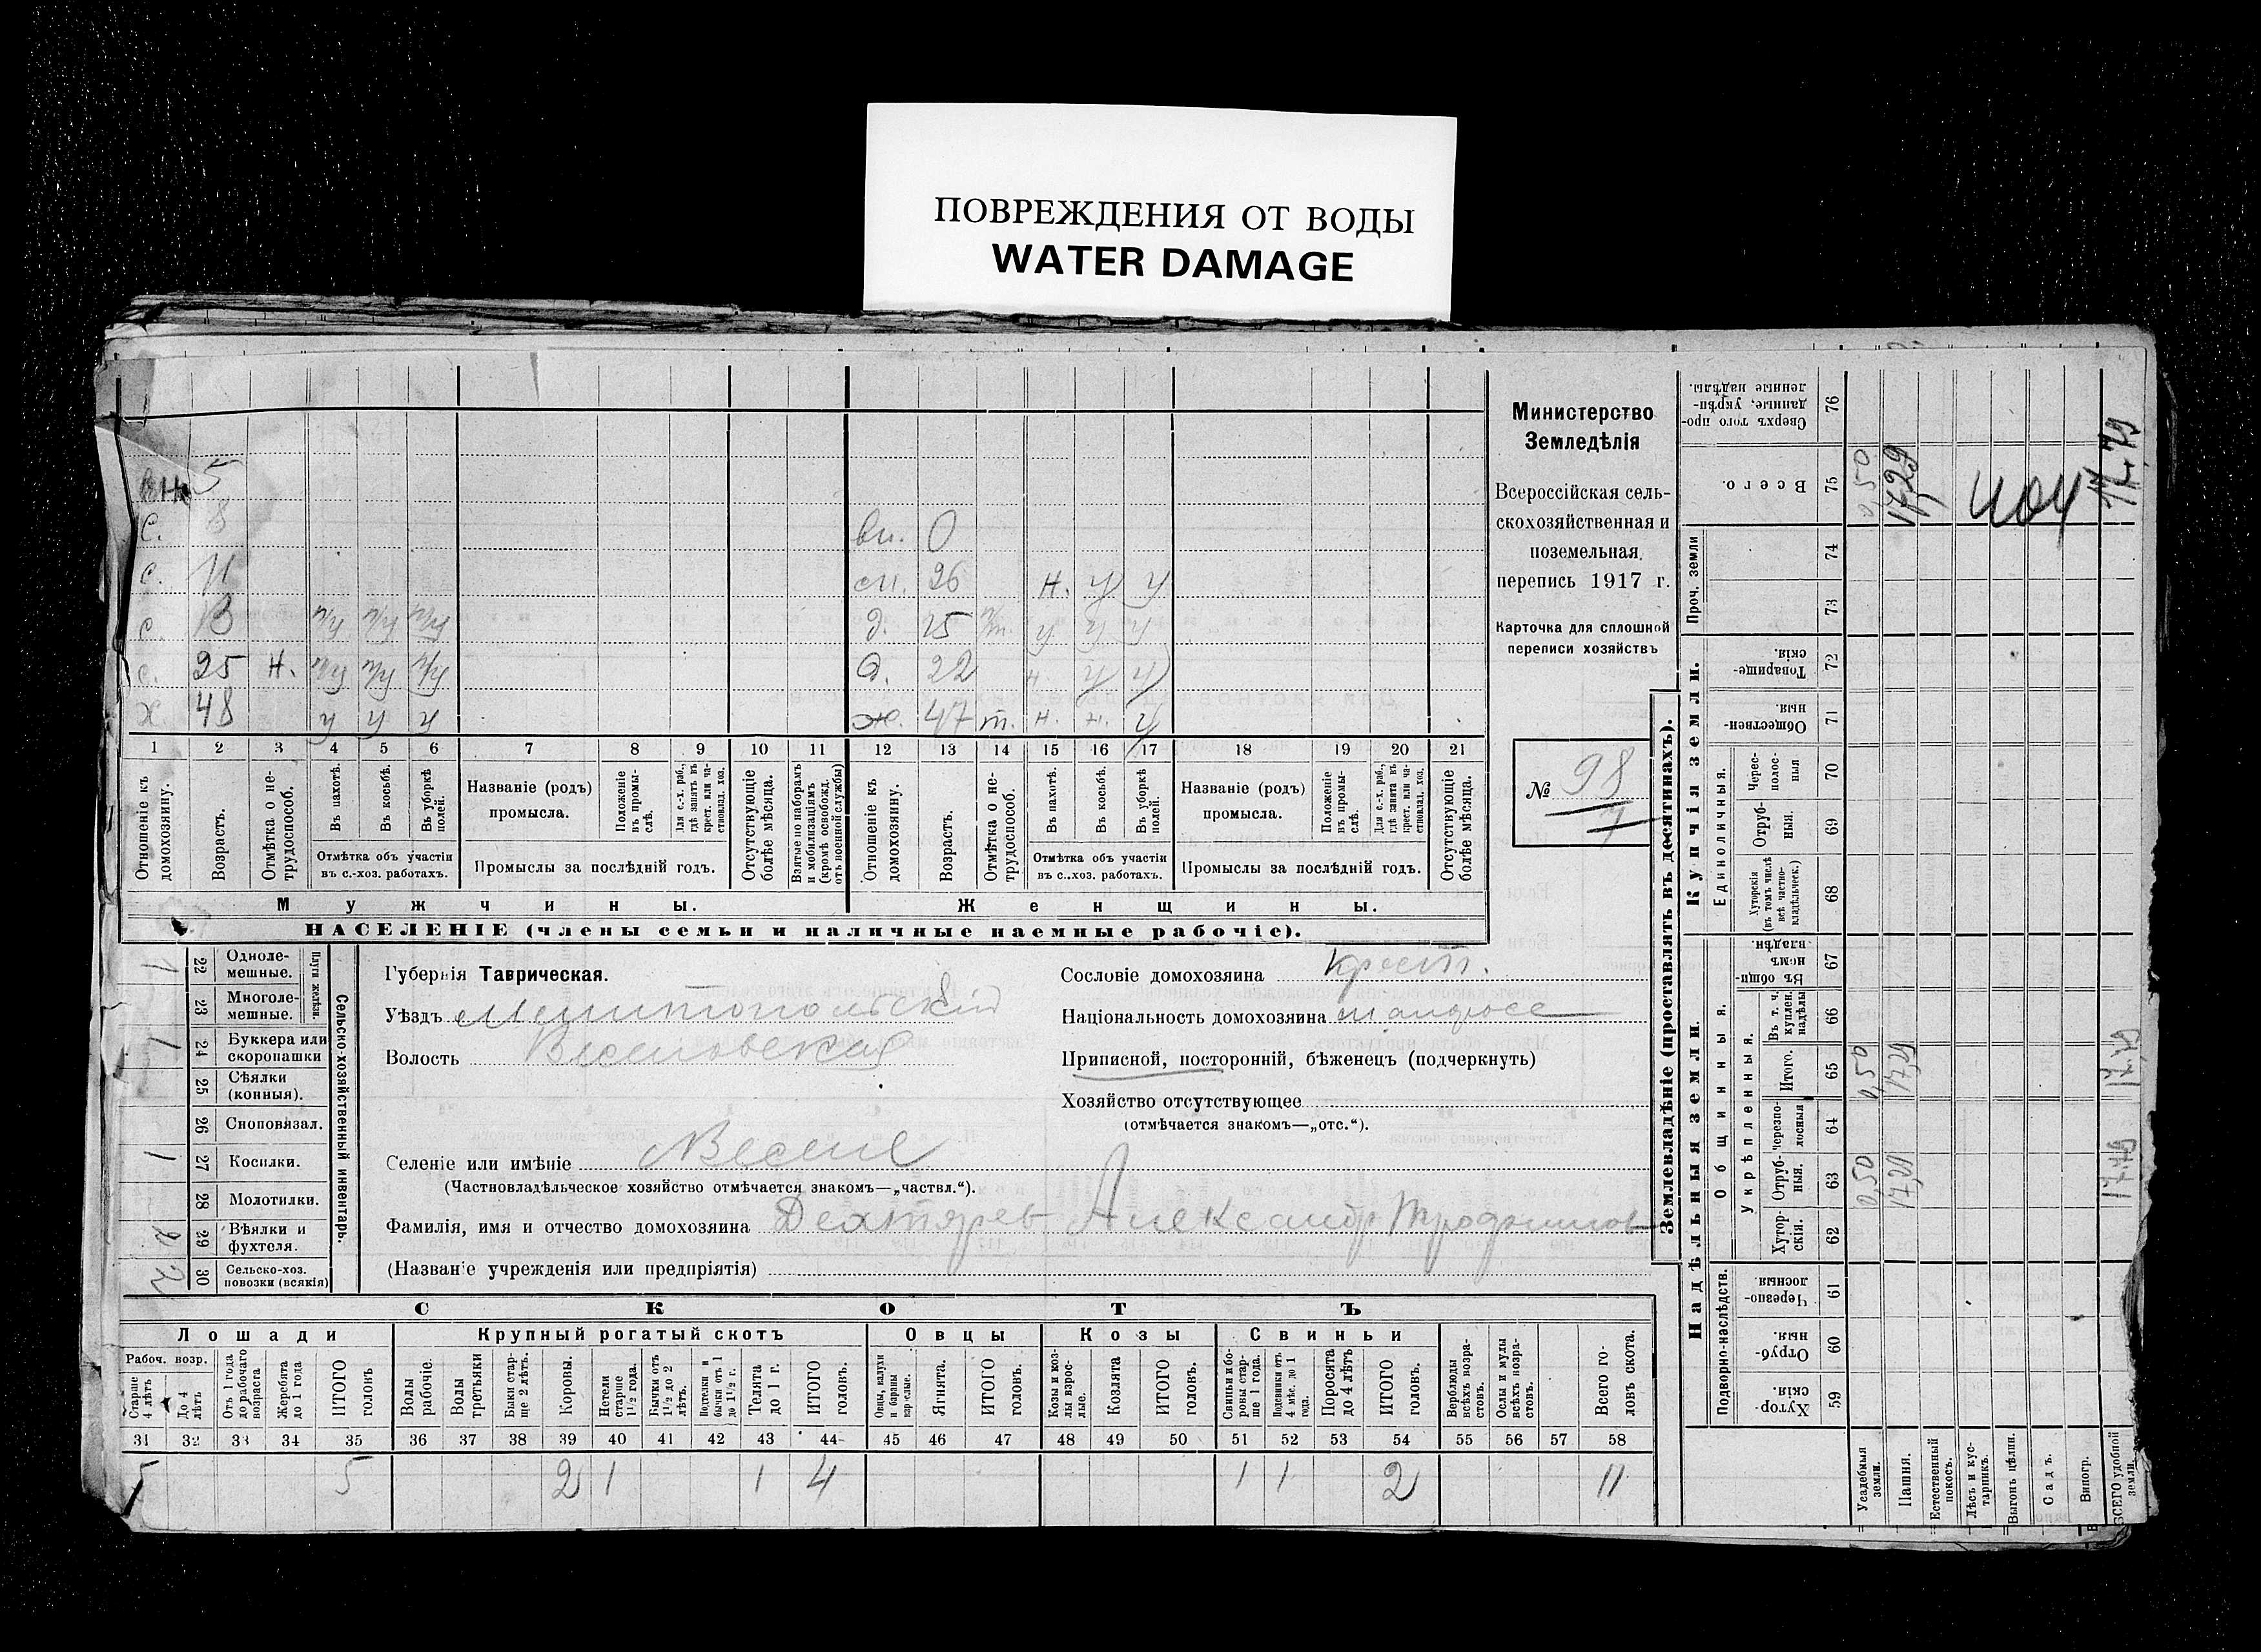 ПОВРЕЖДЕНИЯ ОТ ВОДЫ
WATER DAMAGE
Министерство
Земледѣлія
Всероссійская сель-
скохозяйственная и
поземельная
перепись 1917 г.
Карточка для сплошной
переписи хозяйствъ
№ 98
7
вн. 5
с. 8
с. 11
с. 13
с. 25 н.
х 48 ч ч ч
вн. 0
сн. 26 н. ч ч
д. 15 ч ч ч
д. 22 н ч ч
ж. 47 н. н. ч
1 2 3 4 5 6 7 8 9 10 11 12 13 14 15 16 17 18 19 20 21
Отношеніе къ домохозяину.
Возрастъ.
Отмѣтка о не-трудоспособ.
Въ пахотѣ.
Въ косьбѣ.
Въ уборкѣ полей.
Отмѣтка объ участіи въ с.-хоз. работахъ.
Названіе (родъ) промысла.
Положеніе въ промыслѣ.
Для с.-х. раб., гдѣ занятъ въ крест. или частновлад. хоз.
Промыслы за послѣдній годъ.
Отсутствующіе болѣе мѣсяца.
Взятые по наборамъ и мобилизаціямъ (кромѣ освобожд. отъ военной службы)
Отношеніе къ домохозяину.
Возрастъ.
Отмѣтка о не-трудоспособ.
Въ пахотѣ.
Въ косьбѣ.
Въ уборкѣ полей.
Отмѣтка объ участіи въ с.-хоз. работахъ.
Названіе (родъ) промысла.
Положеніе въ промыслѣ.
Для с.-х. раб., гдѣ занята въ крест. или частновлад. хоз.
Промыслы за послѣдній годъ.
Отсутствующіе болѣе мѣсяца.
Мужчины. Женщины.
НАСЕЛЕНІЕ (члены семьи и наличные наемные рабочіе).
Сельско-хозяйственный инвентарь.
Плуги желѣзн.
1 22 Одноле-мешные.
23 Многоле-мешные.
1 24 Буккера или скоропашки
25 Сѣялки (конныя).
26 Сноповязал.
1 27 Косилки.
28 Молотилки.
29 Вѣялки и фухтеля.
2 30 Сельско-хоз. повозки (всякія)
Губернія Таврическая.
Уѣздъ Мелитопольскій
Волость Веселовская
Селеніе или имѣніе
(Частновладѣльческое хозяйство отмѣчается знакомъ—„частвл.“).
Фамилія, имя и отчество домохозяина Дехтярев Александр Трофимов
(Названіе учрежденія или предпріятія)
Сословіе домохозяина крест.
Національность домохозяина малоросс
Приписной, посторонній, бѣженецъ (подчеркнуть)
Хозяйство отсутствующее
(отмѣчается знакомъ—„отс.“).
СКОТЪ
Лошади Крупный рогатый скотъ Овцы Козы Свиньи
Рабоч. возр.
Старше 4 лѣтъ
До 4 лѣтъ
Отъ 1 года до рабочаго возраста
Жеребята до 1 года
ИТОГО головъ
Волы рабочіе.
Волы третьяки
Быки стар-ше 2 лѣтъ.
Коровы.
Нетели старше 1½ года.
Бычки отъ 1½ до 2 лѣтъ.
Подтелки и бычки отъ 1 до 1½ г.
Телята до 1 г.
ИТОГО головъ.
Овцы, валухи и бараны взрослые.
Ягнята.
ИТОГО головъ.
Козы и коз-лы взрос-лые.
Козлята
ИТОГО головъ.
Свиньи и бо-ровы стар-ше 1 года.
Подсвинки отъ 4 мѣс. до 1 года.
Поросята до 4 лѣтъ
ИТОГО головъ.
Верблюды всѣхъ возра-стовъ.
Ослы и мулы всѣхъ возра-стовъ.
Всего го-ловъ скота.
31 32 33 34 35 36 37 38 39 40 41 42 43 44 45 46 47 48 49 50 51 52 53 54 55 56 57 58
5 5 2 1 1 4 1 1 2 11
Землевладѣніе (проставлять въ десятинахъ).
Надѣльныя земли. Купчія земли.
Подворно-наслѣдств.
Общинныя.
Укрѣпленныя.
Единоличныя.
Проч. земли
Сверхъ того про-данные, укрѣп-ленные надѣлы. 76
Всего. 75 0,50 17,29 17,79
74
73
Товарище-скія. 72
Обществен-ныя 71
Черес-полос-ныя 70
Отруб-ныя. 69
Хуторскія (въ томъ числѣ всѣ частно-владѣльческ.) 68
Въ общин-номъ владѣн. 67
Въ т. ч. куплен. надѣлы 66
Итого. 65 0,50 17,29 17,79
Черезпо-лосныя 64
Отруб-ныя. 63 0,50 17,29 17,79
Хутор-скія. 62
Черезпо-лосныя 61
Отруб-ныя. 60
Хутор-скія. 59
Усадебныя земли.
Пашня.
Естественный покосъ.
Лѣсъ и кус-тарникъ.
Выгонъ цѣлин.
Садъ.
Виногр.
ВСЕГО удобной земли.